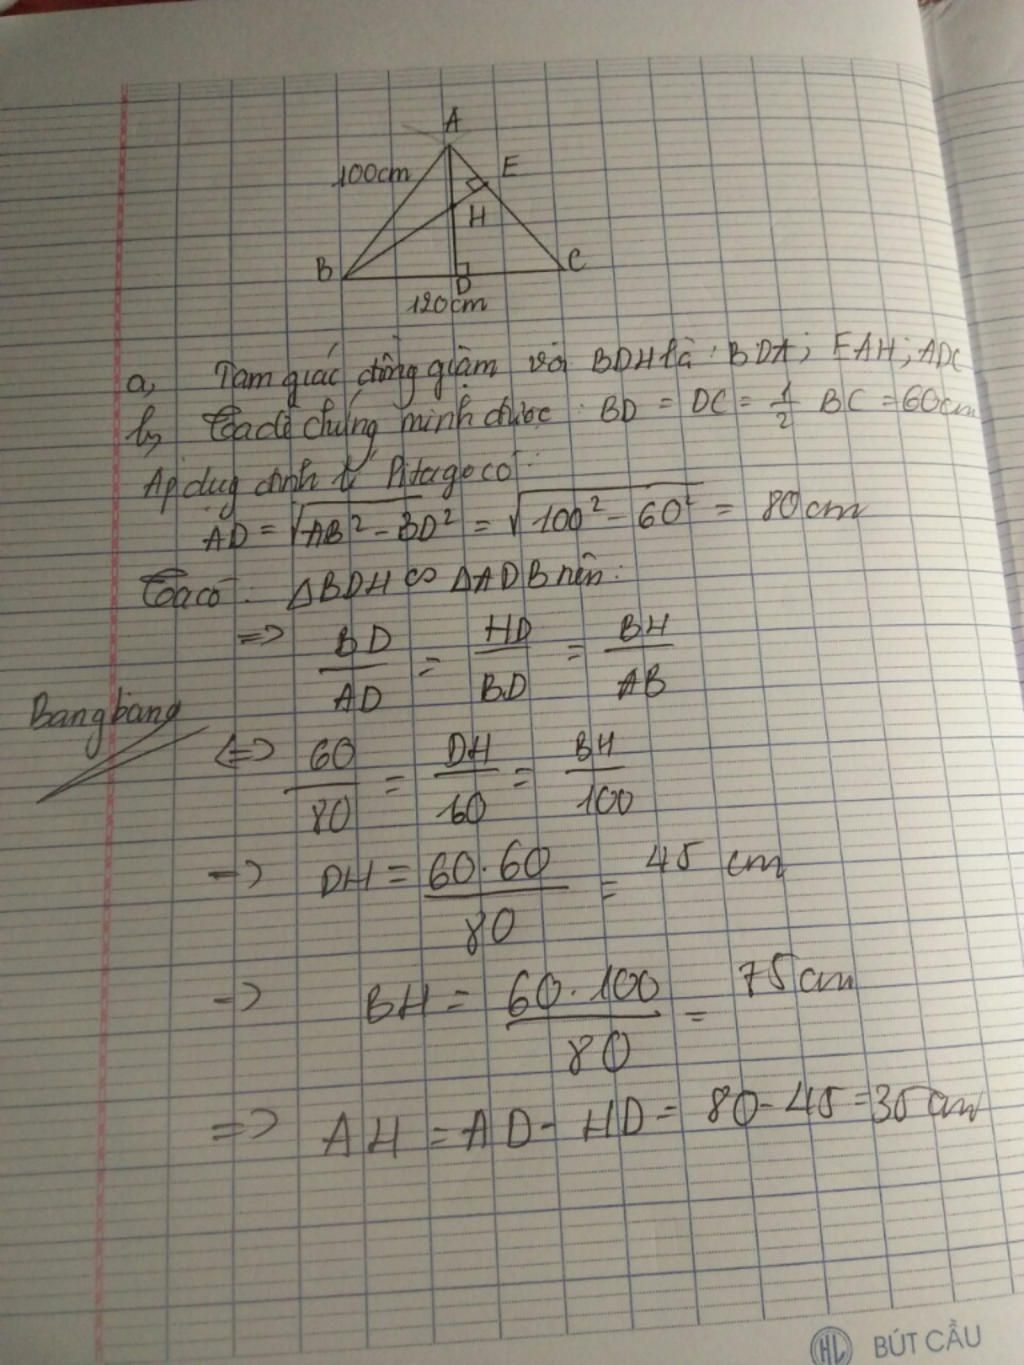 A
100cm
E
H
B
D
C
120cm
a, Tam giác đồng giạm với BDH là : BDA; EAH; ADC
b, Ta dễ chứng minh được : BD = DC = 1/2 BC = 60cm
Áp dụg định lí Pitago có :
AD = √(AB² - BD²) = √(100² - 60²) = 80 cm
Ta có : ΔBDH ∽ ΔADB nên :
=> BD/AD = HD/BD = BH/AB
Bangbang
<=> 60/80 = DH/60 = BH/100
-> DH = 60.60/80 = 45 cm
-> BH = 60.100/80 = 75 cm
=> AH = AD - HD = 80 - 45 = 35 cm
HL BÚT CẦU